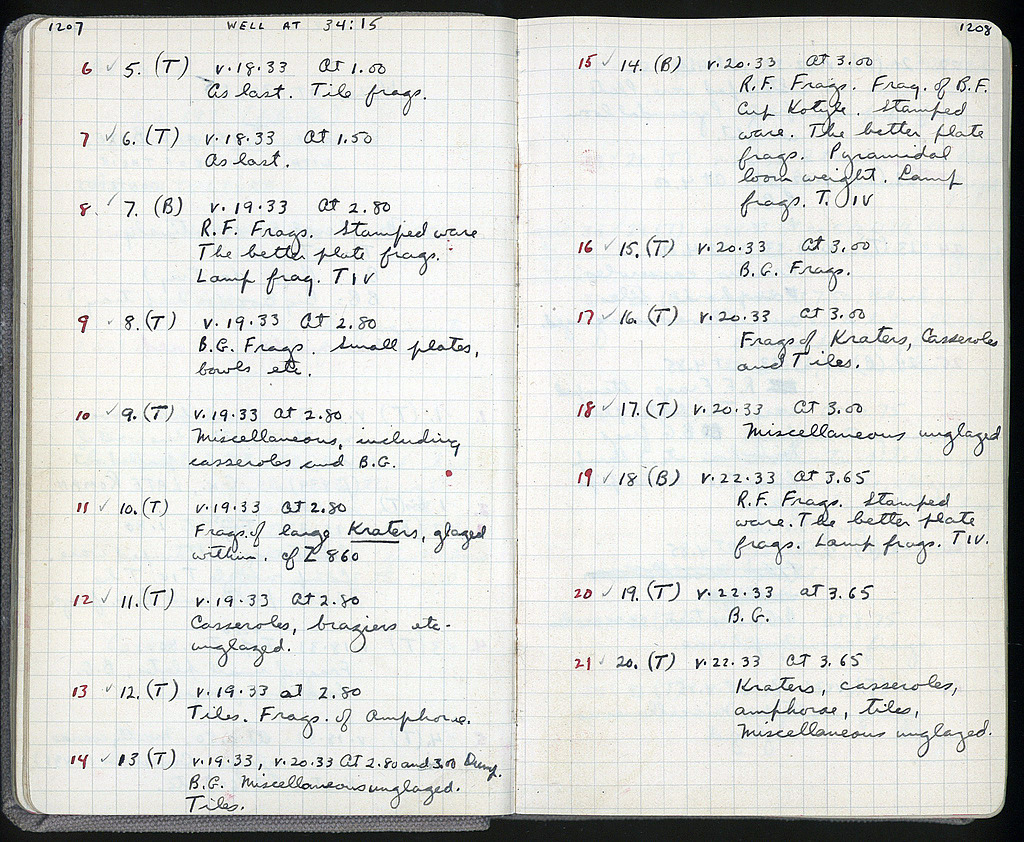 1207 WELL AT 34:15
6 ✓ 5. (T) v.18.33 At 1.00
As last. Tile frags.
7 ✓ 6. (T) v.18.33 At 1.50
As last.
8. ✓ 7. (B) v.19.33 At 2.80
R.F. Frags. Stamped ware
The better plate frags.
Lamp frag. T IV
9 ✓ 8. (T) v.19.33 At 2.80
B.G. Frags. Small plates,
bowls etc.
10 ✓ 9. (T) v.19.33 at 2.80
Miscellaneous, including
casseroles and B.G.
11 ✓ 10. (T) v.19.33 at 2.80
Frags. of large Kraters, glazed
within. cf Z 860
12 ✓ 11. (T) v.19.33 At 2.80
Casseroles, braziers etc.
unglazed.
13 ✓ 12. (T) v.19.33 at 2.80
Tiles. Frags. of Amphorae.
14 ✓ 13 (T) v.19.33, v.20.33 At 2.80 and 3.00 Dump.
B.G. Miscellaneous unglazed.
Tiles.
1208
15 ✓ 14. (B) v.20.33 At 3.00
R.F. Frags. Frag. of B.F.
Cup Kotyle. Stamped
ware. The better plate
frags. Pyramidal
loom weight. Lamp
frags. T. IV
16 ✓ 15. (T) v.20.33 At 3.00
B.G. Frags.
17 ✓ 16. (T) v.20.33 At 3.00
Frags of Kraters, Casseroles
and Tiles.
18 ✓ 17. (T) v.20.33 At 3.00
Miscellaneous unglazed
19 ✓ 18 (B) v.22.33 At 3.65
R.F. Frags. Stamped
ware. The better plate
frags. Lamp frags. T IV.
20 ✓ 19. (T) v.22.33 at 3.65
B.G.
21 ✓ 20. (T) v.22.33 At 3.65
Kraters, casseroles,
amphorae, tiles,
Miscellaneous unglazed.